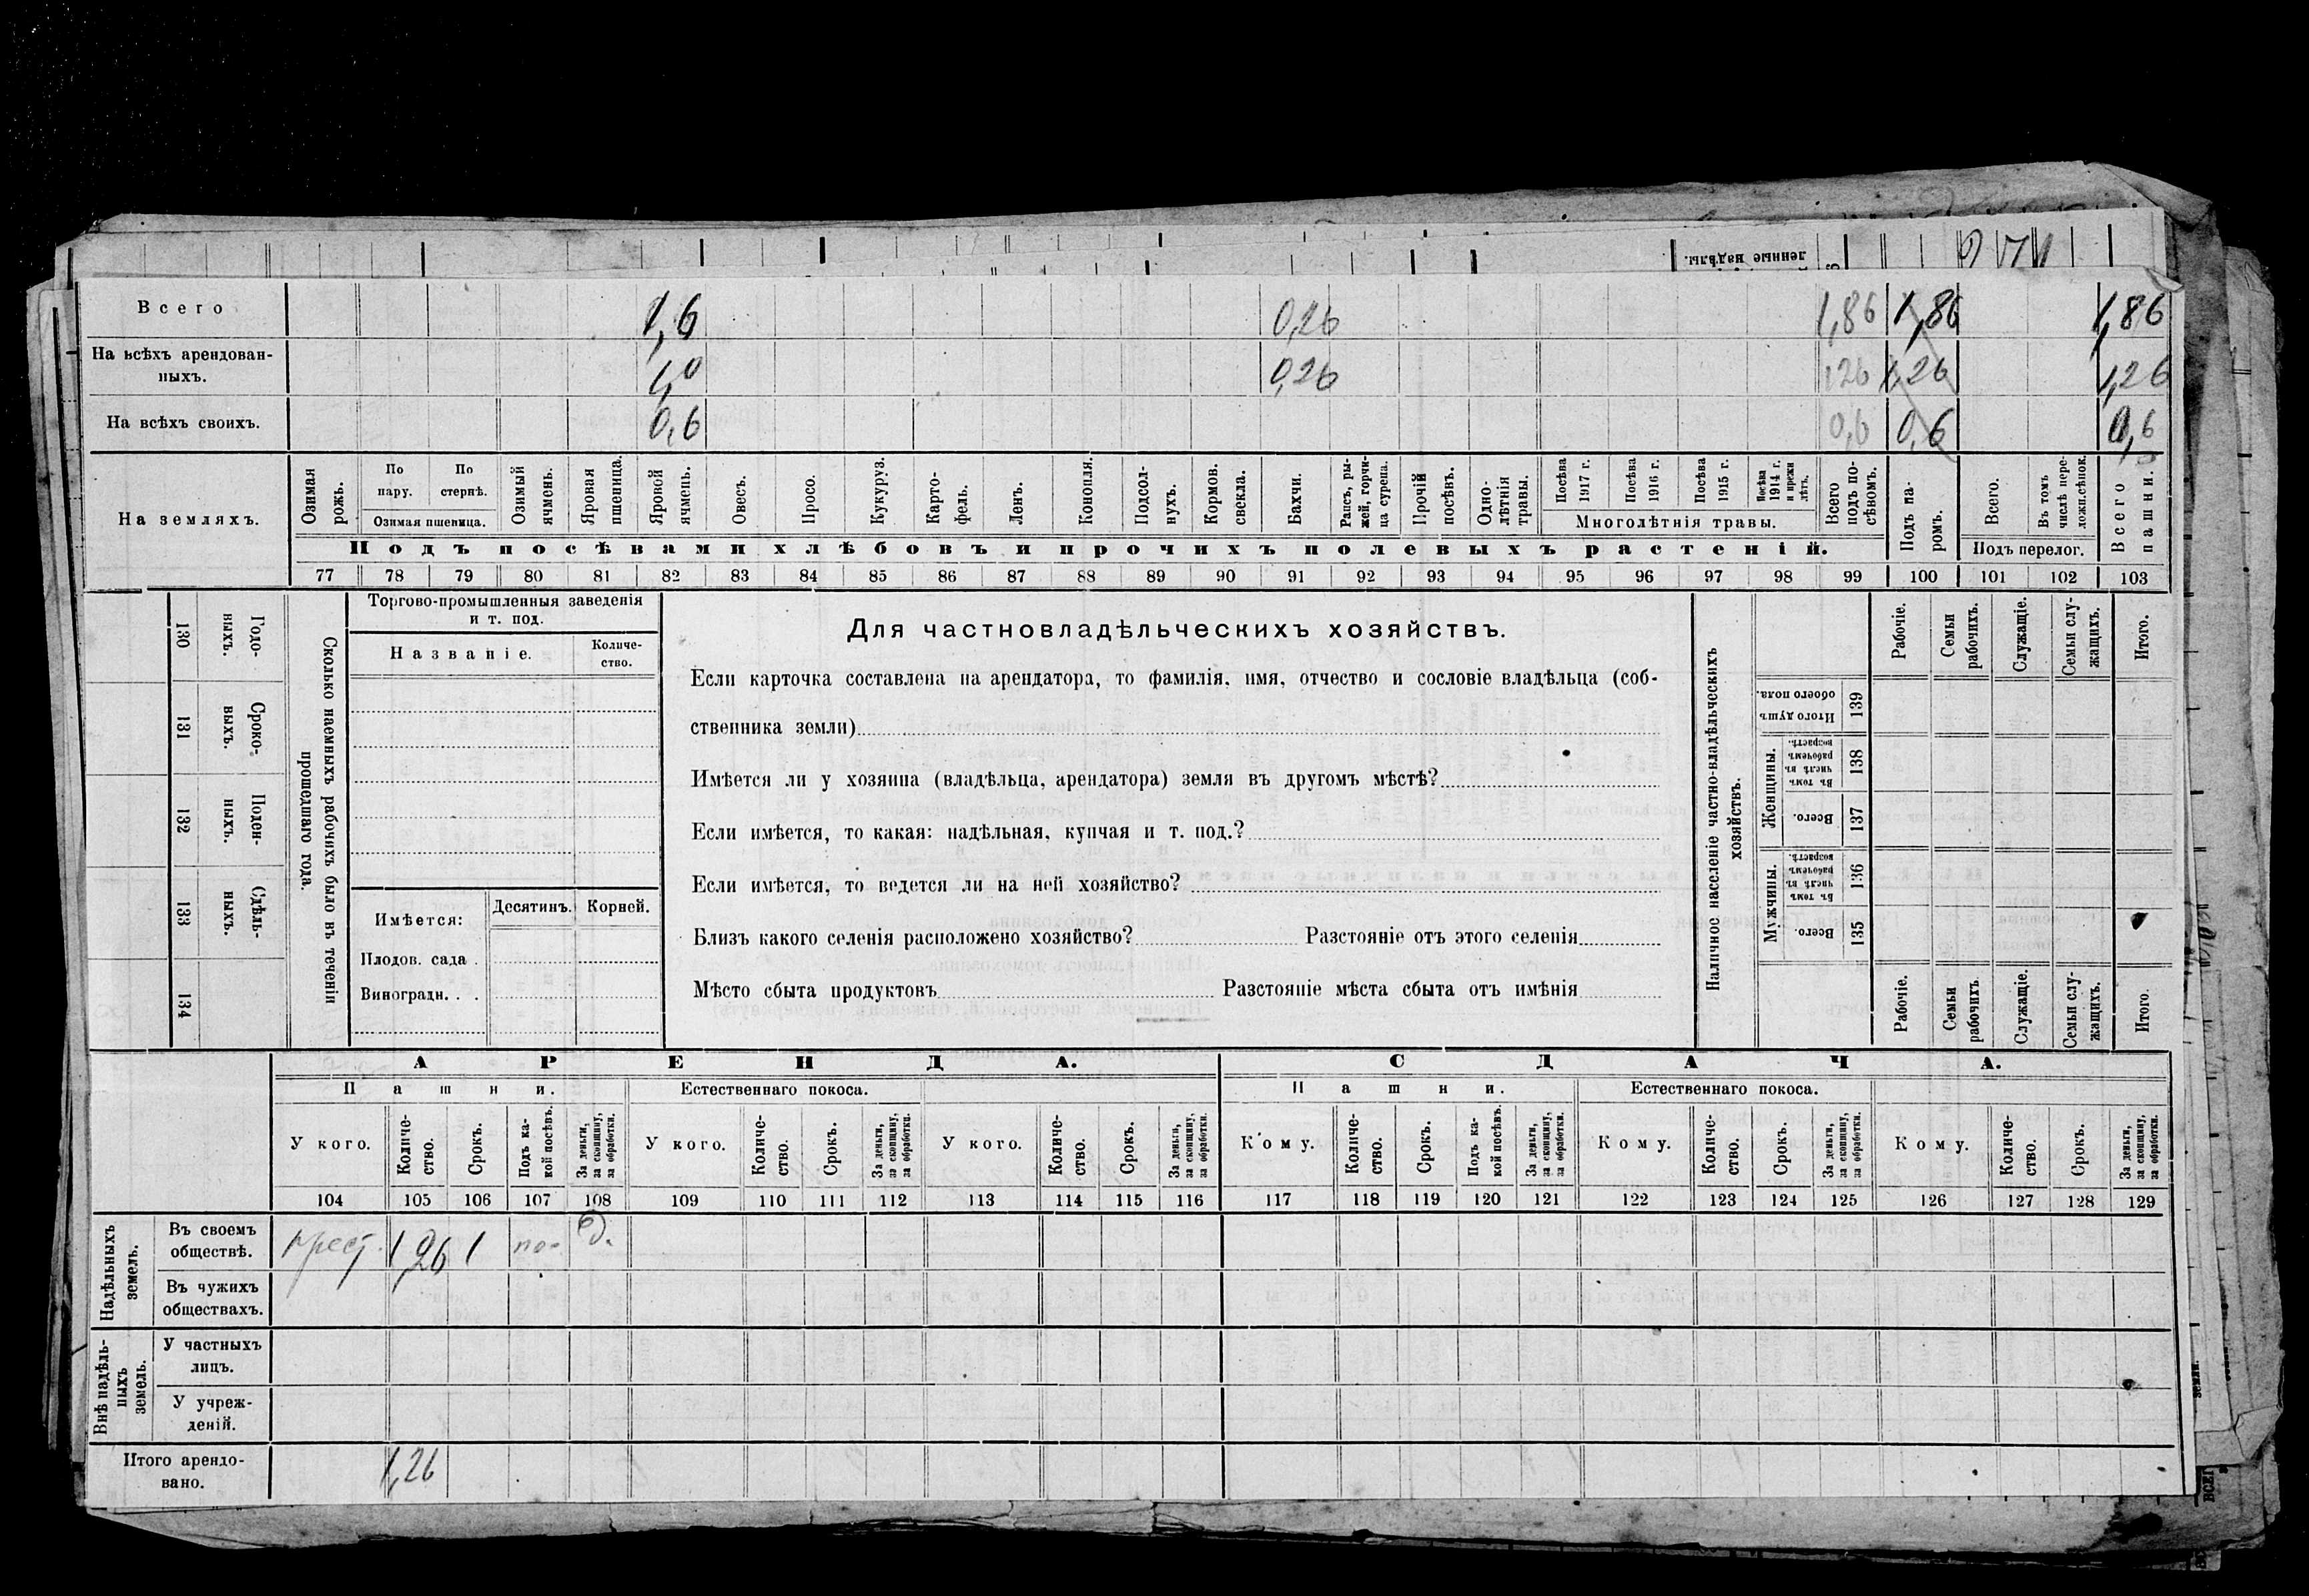 ленные надѣлы.
Всего 1,6 0,26 1,86 1,86 1,86
На всѣхъ арендован-
ныхъ. 1,0 0,26 126 1,26 1,26
На всѣхъ своихъ. 0,6 0,6 0,6 0,6
На земляхъ.
Озимая рожь.
По пару.
По стернѣ.
Озимая пшеница.
Озимый ячмень.
Яровая пшеница.
Яровой ячмень.
Овесъ.
Просо.
Кукуруз.
Карто-
фель.
Ленъ.
Конопля.
Подсол-
нухъ.
Кормов. свекла.
Бахчи.
Рапсъ, ры-
жей, горчи-
ца сурепа.
Прочій посѣвъ.
Одно-
лѣтнія травы.
Посѣва 1917 г.
Посѣва 1916 г.
Посѣва 1915 г.
Посѣва 1914 г. и прежн лѣтъ.
Многолѣтнія травы.
Всего подъ по-
сѣвомъ.
Подъ па-
ромъ.
Всего.
Въ томъ числѣ пере-
ложн.сѣнок.
Подъ перелог.
Всего пашни.
Подъ посѣвами хлѣбовъ и прочихъ полевыхъ растеній.
77 78 79 80 81 82 83 84 85 86 87 88 89 90 91 92 93 94 95 96 97 98 99 100 101 102 103
130 Годо-
выхъ.
131 Сроко-
выхъ.
132 Поден-
ныхъ.
133 Сдѣль-
ныхъ.
134
Сколько наемныхъ рабочихъ было въ теченіи
прошедшаго года.
Торгово-промышленныя заведенія
и т. под.
Названіе.
Количе-
ство.
Имѣется:
Десятинъ.
Корней.
Плодов. сада .
Виноградн. . .
Для частновладѣльческихъ хозяйствъ.
Если карточка составлена на арендатора, то фамилія, имя, отчество и сословіе владѣльца (соб-
ственника земли)
Имѣется ли у хозяина (владѣльца, арендатора) земля въ другомъ мѣстѣ?
Если имѣется, то какая: надѣльная, купчая и т. под.?
Если имѣется, то ведется ли на ней хозяйство?
Близъ какого селенія расположено хозяйство? Разстояніе отъ этого селенія
Мѣсто сбыта продуктовъ Разстояніе мѣста сбыта отъ имѣнія
Наличное населеніе частно-владѣльческихъ
хозяйствъ.
Мужчины.
Женщины.
Итого душъ обоего пола. 139
Въ томъ числѣ въ рабочемъ возрастѣ. 138
Всего. 137
Въ томъ числѣ въ рабочемъ возрастѣ. 136
Всего. 135
Рабочіе.
Семьи рабочихъ.
Служащіе.
Семьи слу-
жащихъ.
Итого.
Рабочіе.
Семьи рабочихъ
Служащіе.
Семьи слу-
жащихъ.
Итого.
АРЕНДА. СДАЧА.
Пашни. Естественнаго покоса. Пашни. Естественнаго покоса.
У кого.
Количе-
ство.
Срокъ.
Подъ ка-
кой посѣвъ.
За деньги,
за скопщину,
за обработки.
У кого.
Количе-
ство.
Срокъ.
За деньги,
за скопщину,
за обработки.
У кого.
Количе-
ство.
Срокъ.
За деньги,
за скопщину,
за обработки.
Кому.
Количе-
ство.
Срокъ.
Подъ ка-
кой посѣвъ.
За деньги,
за скопщину,
за обработки.
Кому.
Количе-
ство.
Срокъ.
За деньги,
за скопщину,
за обработки.
Кому.
Количе-
ство.
Срокъ.
За деньги,
за скопщину,
за обработки.
104 105 106 107 108 109 110 111 112 113 114 115 116 117 118 119 120 121 122 123 124 125 126 127 128 129
Надѣльныхъ
земель.
Въ своемъ
обществѣ. крест. 1,26 1 д.
Въ чужихъ
обществахъ.
Внѣ надѣль-
ныхъ
земель.
У частныхъ
лицъ.
У учреж-
деній.
Итого арендо-
вано. 1,26